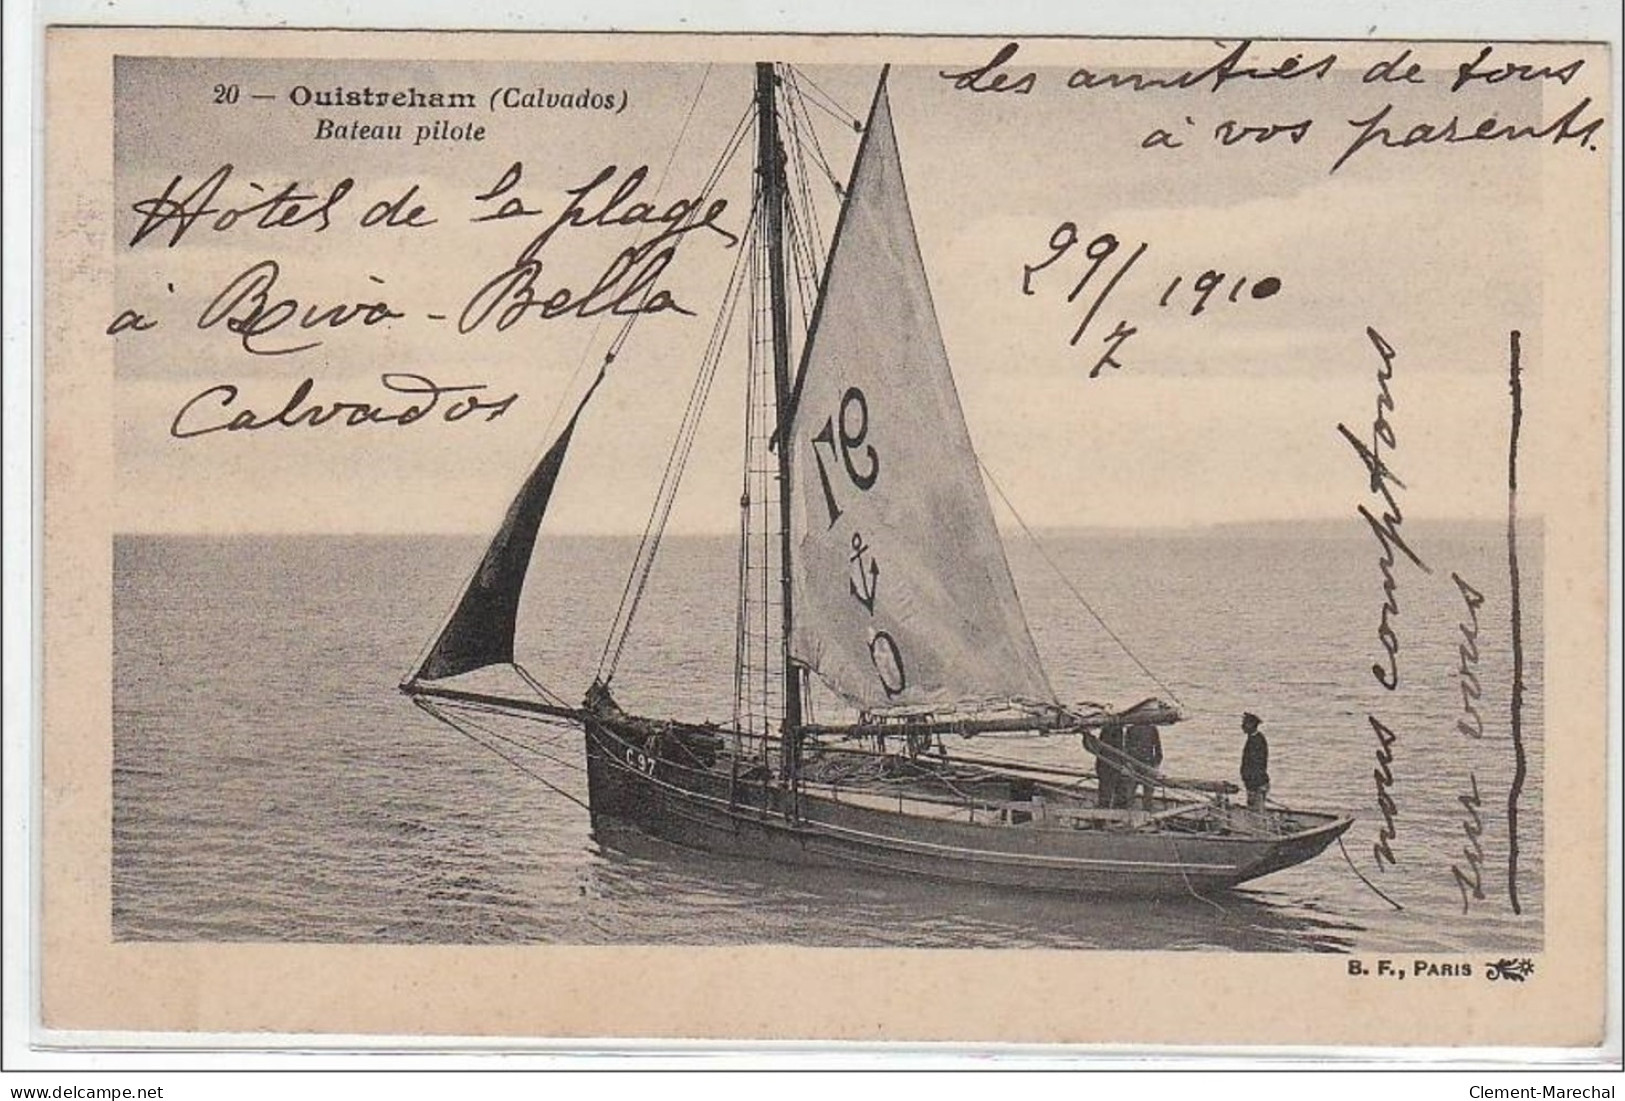 Les amitiés de tous
à vos parents.
20 — Ouistreham (Calvados)
Bateau pilote
Hôtel de la plage
à Riva-Bella
Calvados
29/7 1910
nous comptons
sur vous
C 97
B. F., PARIS
delcampe.net
Clement-Marechal